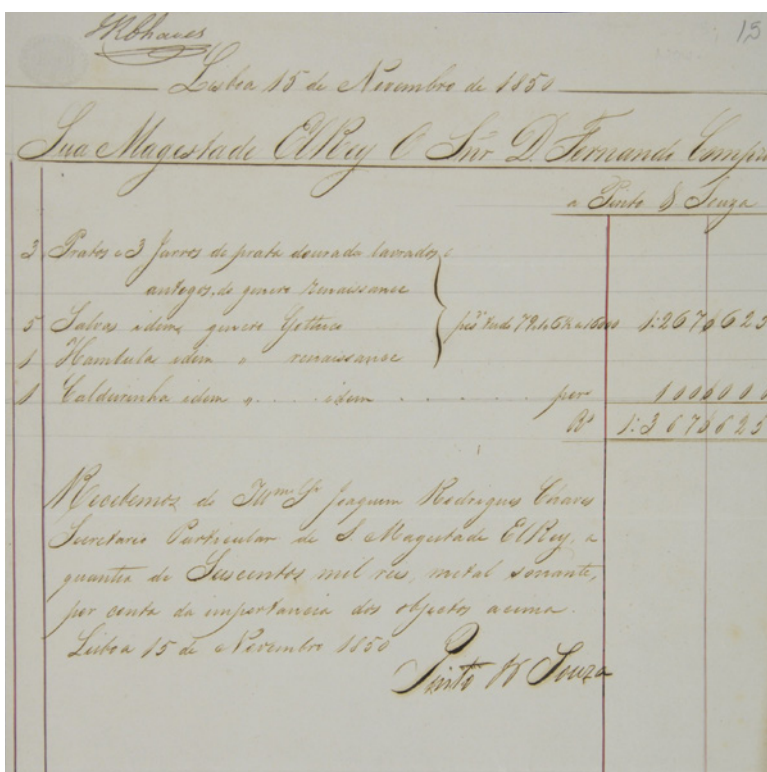 JRChaves
15
Lisboa 15 de Novembro de 1850
Sua Magestade ElRey O Snr D. Fernando Comprou
a Pinto & Souza
3 Pratos e 3 Jarros de prata dourada lavrados e
antigos, de genero renaissance
5 Salvas idem, genero Gothico 1:267$625
1 idem " renaissance
1 Caldeirinha idem " .... idem ...... por 100$000
Rs 1:367$625
Recebemos do Illmo Sr Joaquim Rodrigues Chaves
Secretario Particular de S. Magestade ElRey, a
quantia de Suscentos mil reis, metal sonante,
por conta da importancia dos objectos acima.
Lisboa 15 de Novembro 1850
Pinto & Souza